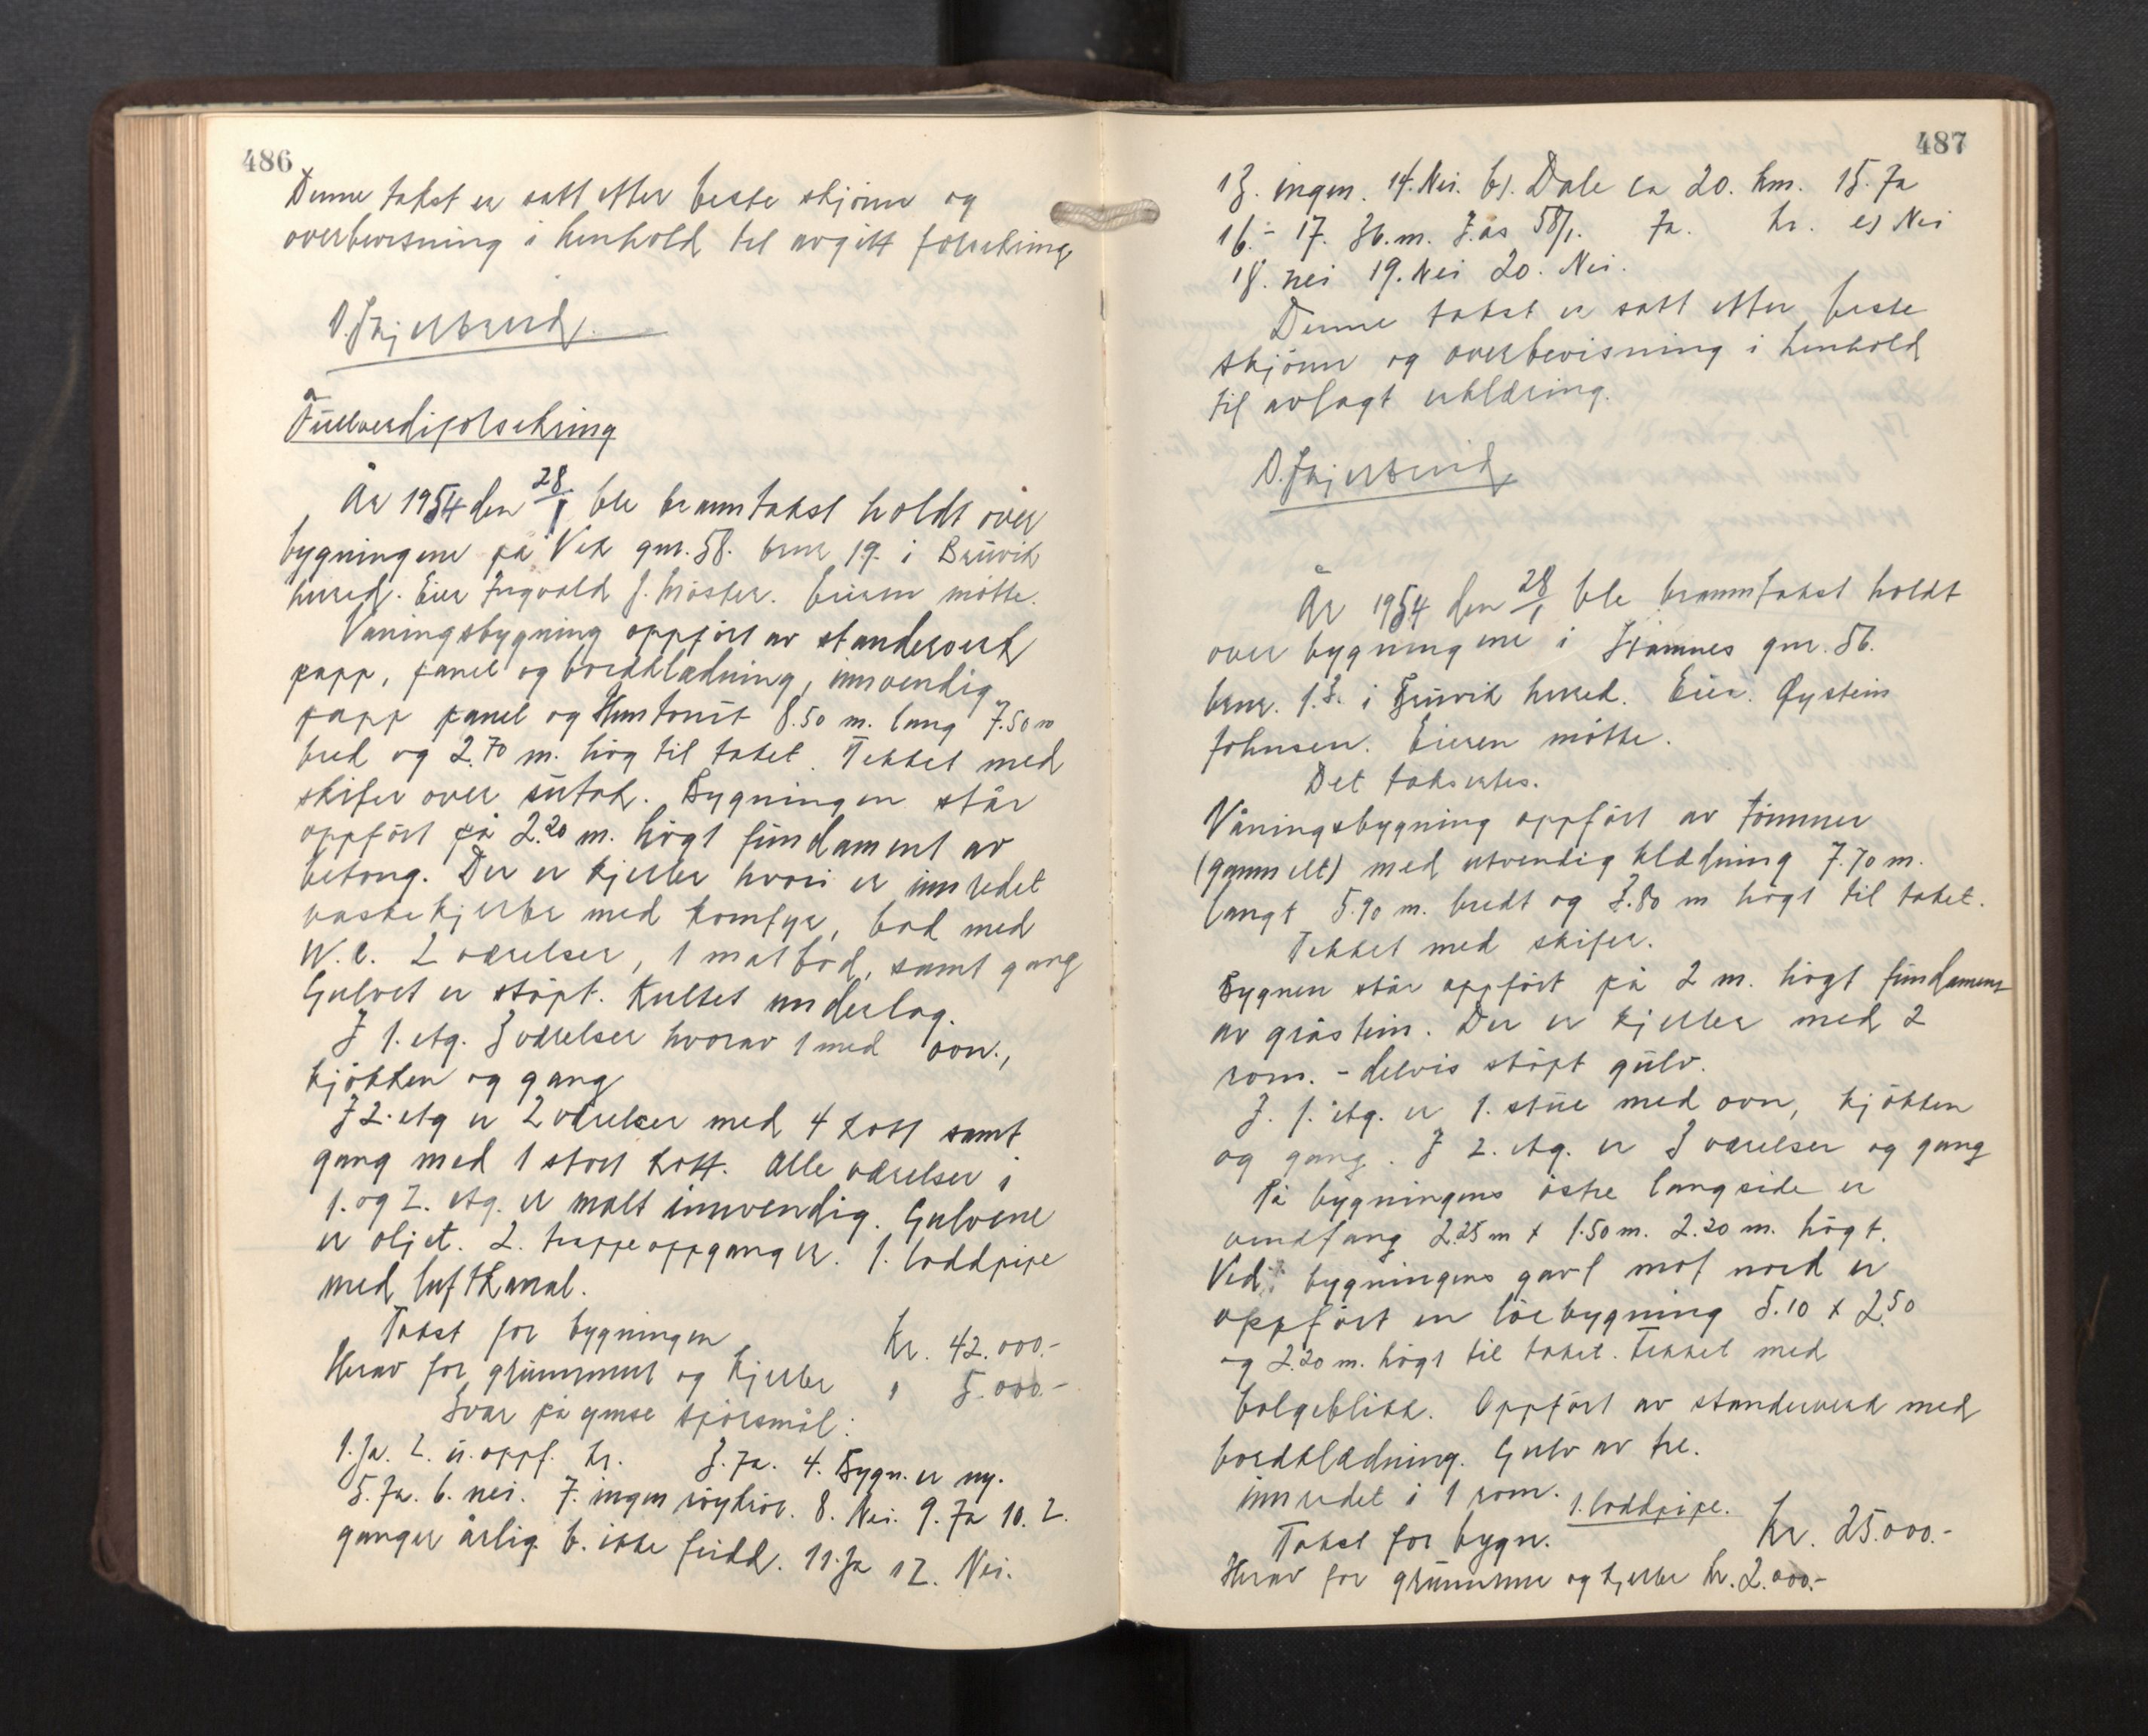 486
Denne takst er satt etter beste skjönn og
overbevisning i henhold til avgitt forsikring
O. Skjerbind
Fullverdiforsikring
År 1954 den 28/1 ble branntakst holdt over
bygningene på Vik gnr. 58. brnr 19. i Bruvik
herred. Eier Ingvald J. Möster. Eieren mötte.
Våningsbygning oppfört av standerverk
papp, panel og bordklædning, innvendig
papp panel og Huntonit 8.50 m. lang 7.50 m
bred og 2.70 m. hög til taket. Tekket med
skifer over sutak. Bygningen står
oppfört på 2.20 m. högt fundament av
betong. Der er kjeller hvori er innredet
vaskekjeller med komfyr, bad med
W.C. 2 værelser, 1 matbod, samt gang
Gulvet er stöpt. Kultet underlag.
I 1. etg. 3 værelser hvorav 1 med ovn.,
kjökken og gang
I 2. etg er 2 værelser med 4 kott samt
gang med 1 stort kott. Alle værelser i
1. og 2. etg. er malt innvendig. Gulvene
er oljet. 2. trappeoppganger. 1. loddpipe
med luftkanal.
Takst for bygningen kr. 42.000.-
Herav for grunnmur og kjeller " 5.000.-
Svar på gmse spörsmål:
1. Ja. 2. u. oppf. kr. 3. Ja. 4. Bygn. er ny.
5. Ja. 6. nei. 7. ingen röykrör. 8. Nei. 9. Ja 10. 2.
ganger årlig b. ikke feidd. 11. Ja 12. Nei.
487
13. ingen. 14. Nei. b). Dale ca 20. km. 15. Ja
16. - 17. 36. m. J. ås 58/1. Ja. kr. e) Nei
18. nei 19. Nei 20. Nei.
Denne takst er satt etter beste
skjönn og overbevisning i henhold
til avlagt erklæring.
O. Skjerbind
År 1954 den 28/1 ble branntakst holdt
over bygningene i Stamnes gnr. 56.
brnr. 1.3. i Bruvik herred. Eier. Øystein
Johnsen. Eieren mötte.
Det taksertes.
Våningsbygning oppfört av tömmer
(gammelt) med utvendig klædning 7.70 m.
langt 5.90 m. bredt og 3.80 m högt til taket.
Tekket med skifer.
Bygnen står oppfört på 2 m. högt fundament
av gråstein. Der er kjeller med 2
rom. - delvis stöpt gulv.
I. 1. etg. er 1. stue med ovn, kjökken
og gang. I 2. etg. er 3 værelser og gang
På bygningens östre langside er
vindfang 2.25 m x 1.50 m. 2.20 m. högt.
Ved bygningens gavl mot nord er
oppfört en löebygning 5.10 x 2.50
og 2.20 m. högt til taket. Tekket med
bølgeblikk. Oppfört av standerverk med
bordklædning. Gulv av tre.
innredet i 1 rom. 1. loddpipe.
Takst for bygn. kr. 25.000.-
Herav for grunnmur og kjeller kr. 2.000.-